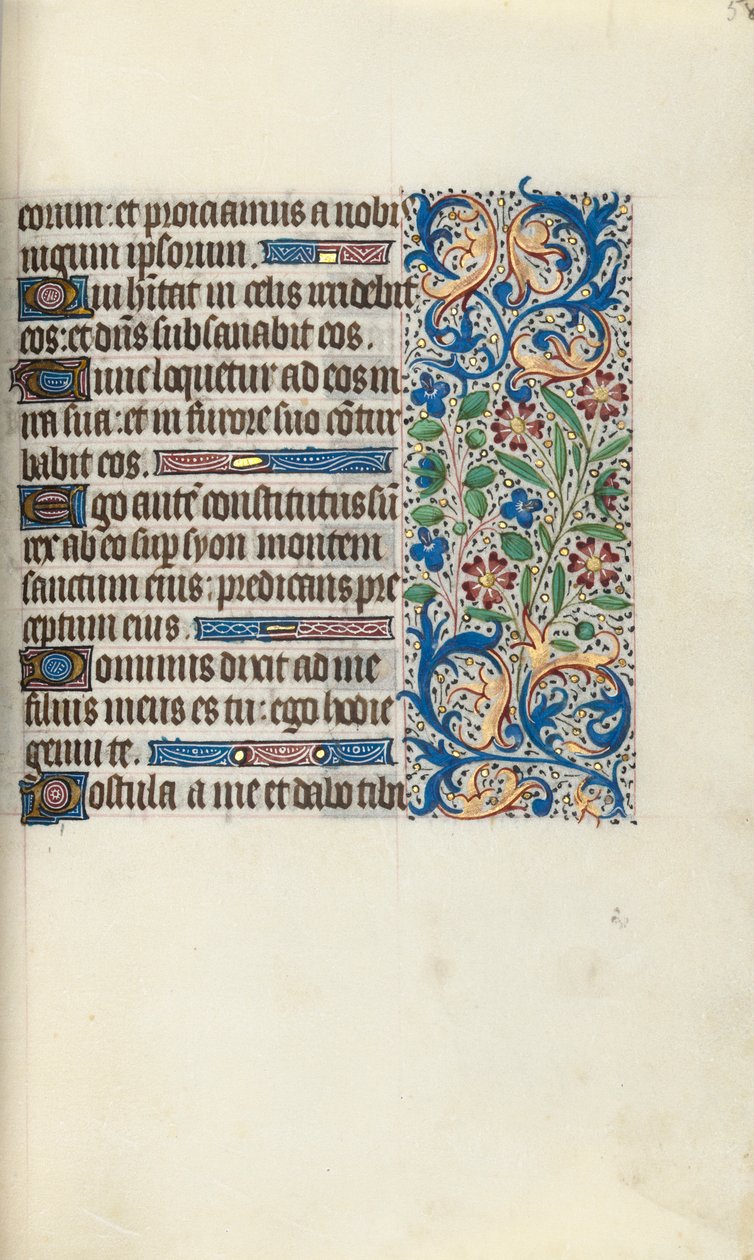 eorum: et proiciamus a nobis
iugum ipsorum.
Qui hītat in celis irridebit
eos: et dn̄s subsanabit eos.
Tunc loquetur ad eos in
ira sua: et in furore suo cōtur
babit eos.
Ego autē constitutus sū
rex ab eo sup syon montem
sanctum eius: predicans pre
ceptum eius.
Dominus dixit ad me
filius meus es tu: ego hodie
genui te.
Postula a me et dabo tibi